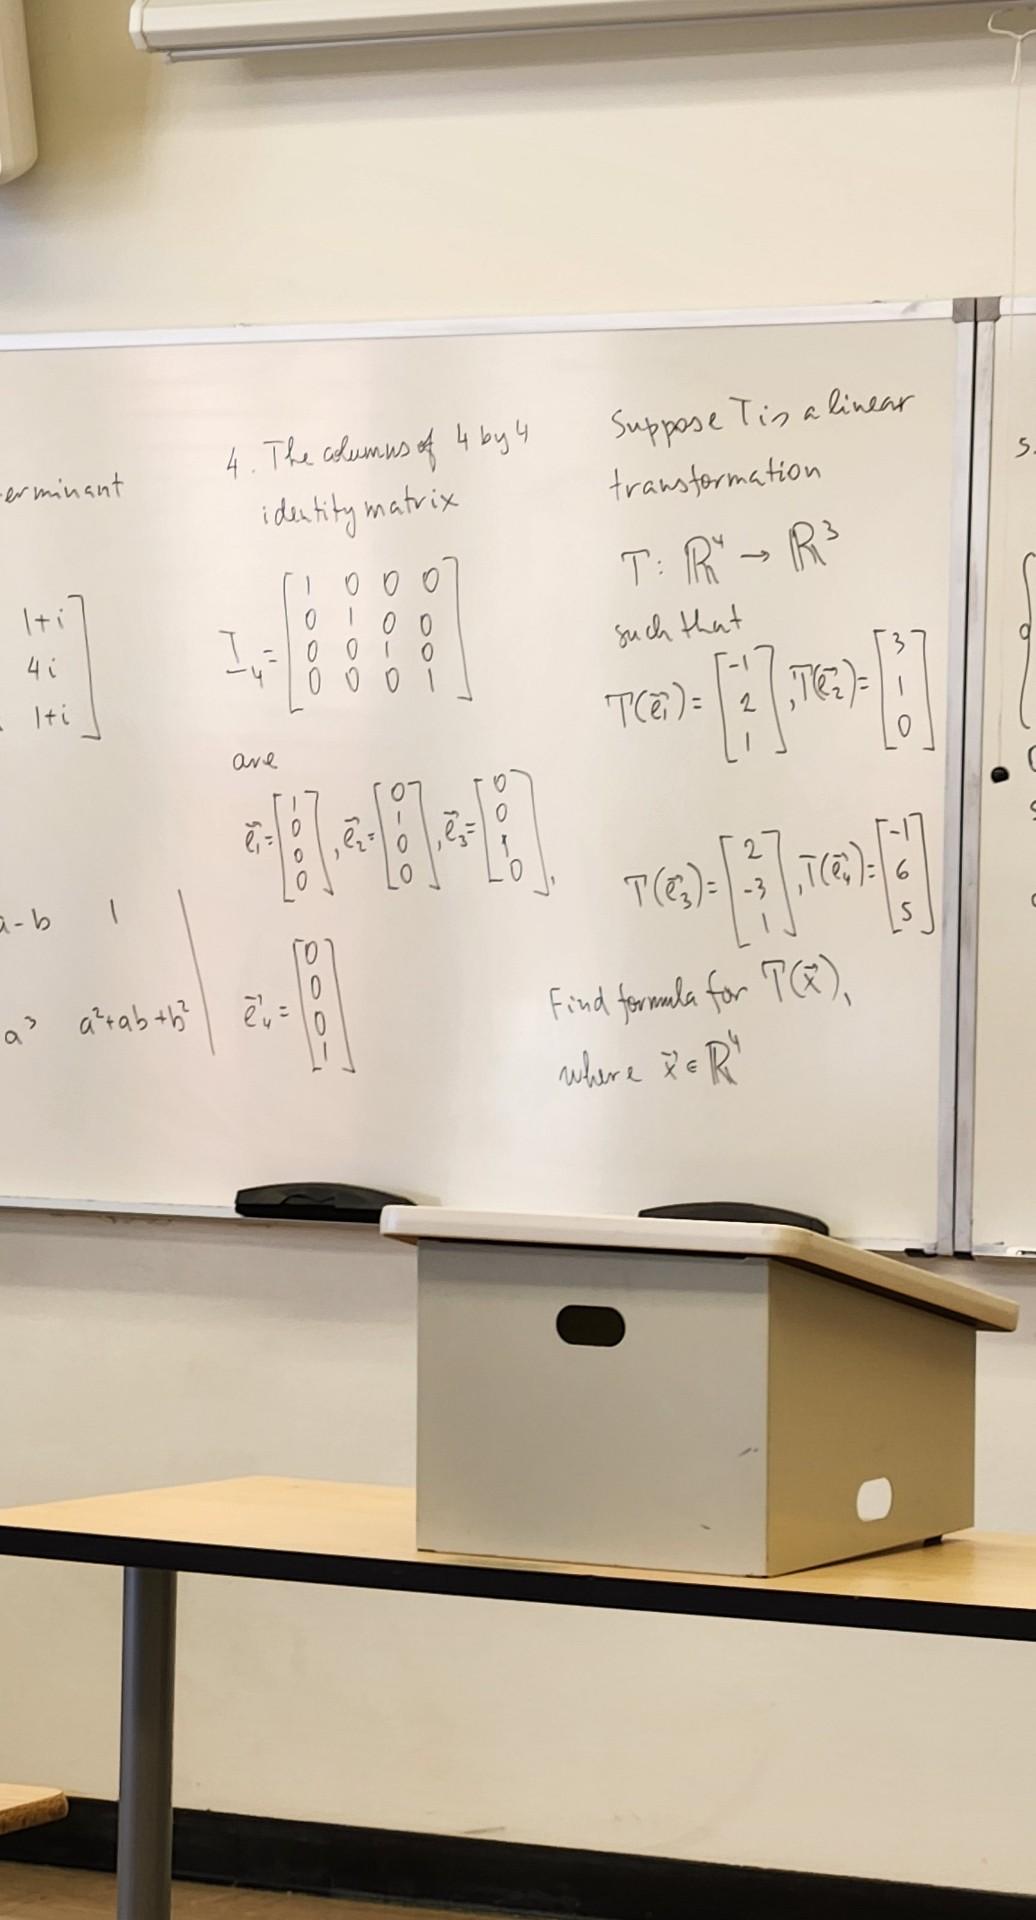 erminant
1+i
4i
1+i
a-b 1
a³ a²+ab+b²
4. The columns of 4 by 4
identity matrix
I₄ = [1 0 0 0
0 1 0 0
0 0 1 0
0 0 0 1]
are
e⃗₁ = [1 0 0 0], e⃗₂ = [0 1 0 0], e⃗₃ = [0 0 1 0],
e⃗₄ = [0 0 0 1]
Suppose T is a linear
transformation
T: ℝ⁴ → ℝ³
such that
T(e⃗₁) = [-1 2 1], T(e⃗₂) = [3 1 0]
T(e⃗₃) = [2 -3 1], T(e⃗₄) = [-1 6 5]
Find formula for T(x⃗),
where x⃗ ∈ ℝ⁴
5.